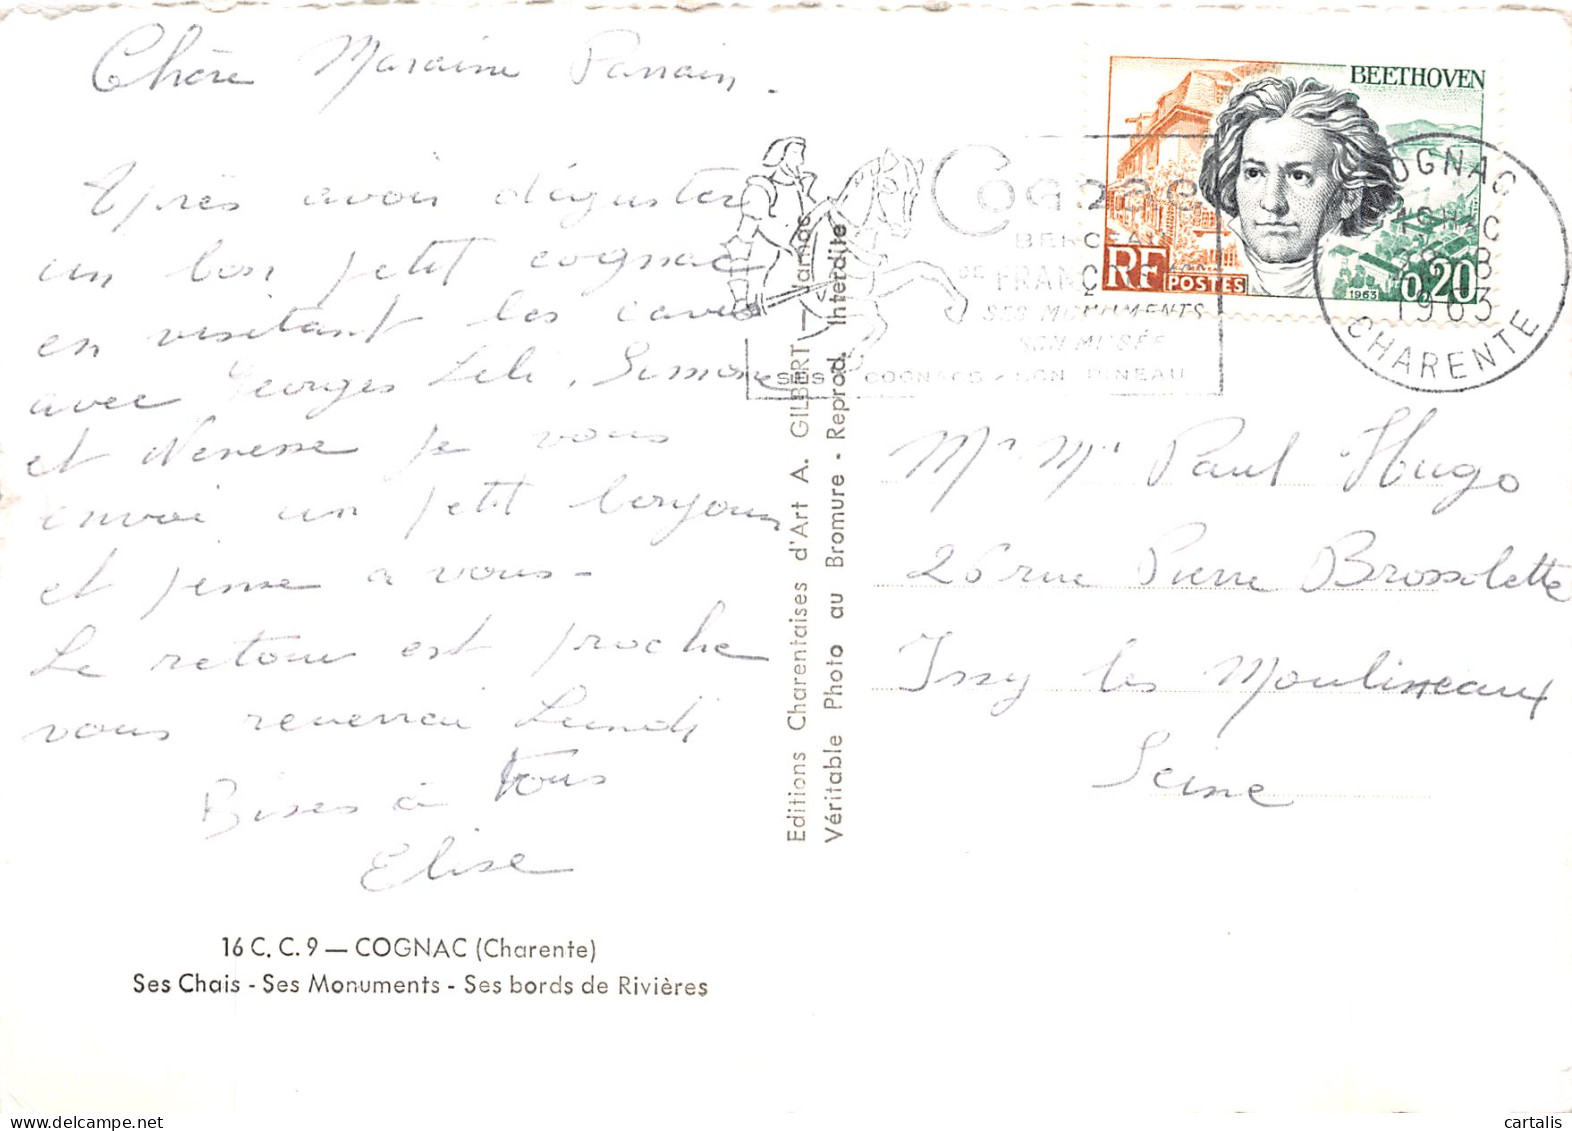 Chère Maraine Parrain.
Après avoir déguster
un bon petit cognac
en visitant les caves
avec Georges Lili, Simone
et Nenesse je vous
envoi un petit bonjour
et pense a vous -
Le retour est proche
vous reverrai Lundi
Bises à tous
Elise
16 C. C. 9 — COGNAC (Charente)
Ses Chais - Ses Monuments - Ses bords de Rivières
Editions Charentaises d'Art A. GILBERT — Jarnac
Véritable Photo au Bromure - Reprod. Interdite
Cognac
BERCEAU
DE FRANÇOIS
SES MONUMENTS
SON MUSÉE
SES COGNACS - SON PINEAU
BEETHOVEN
RF POSTES
1963
0,20
COGNAC
1963
CHARENTE
Mr Me Paul Hugo
26 rue Pierre Brossolette
Issy les Moulineaux
Seine
cartalis